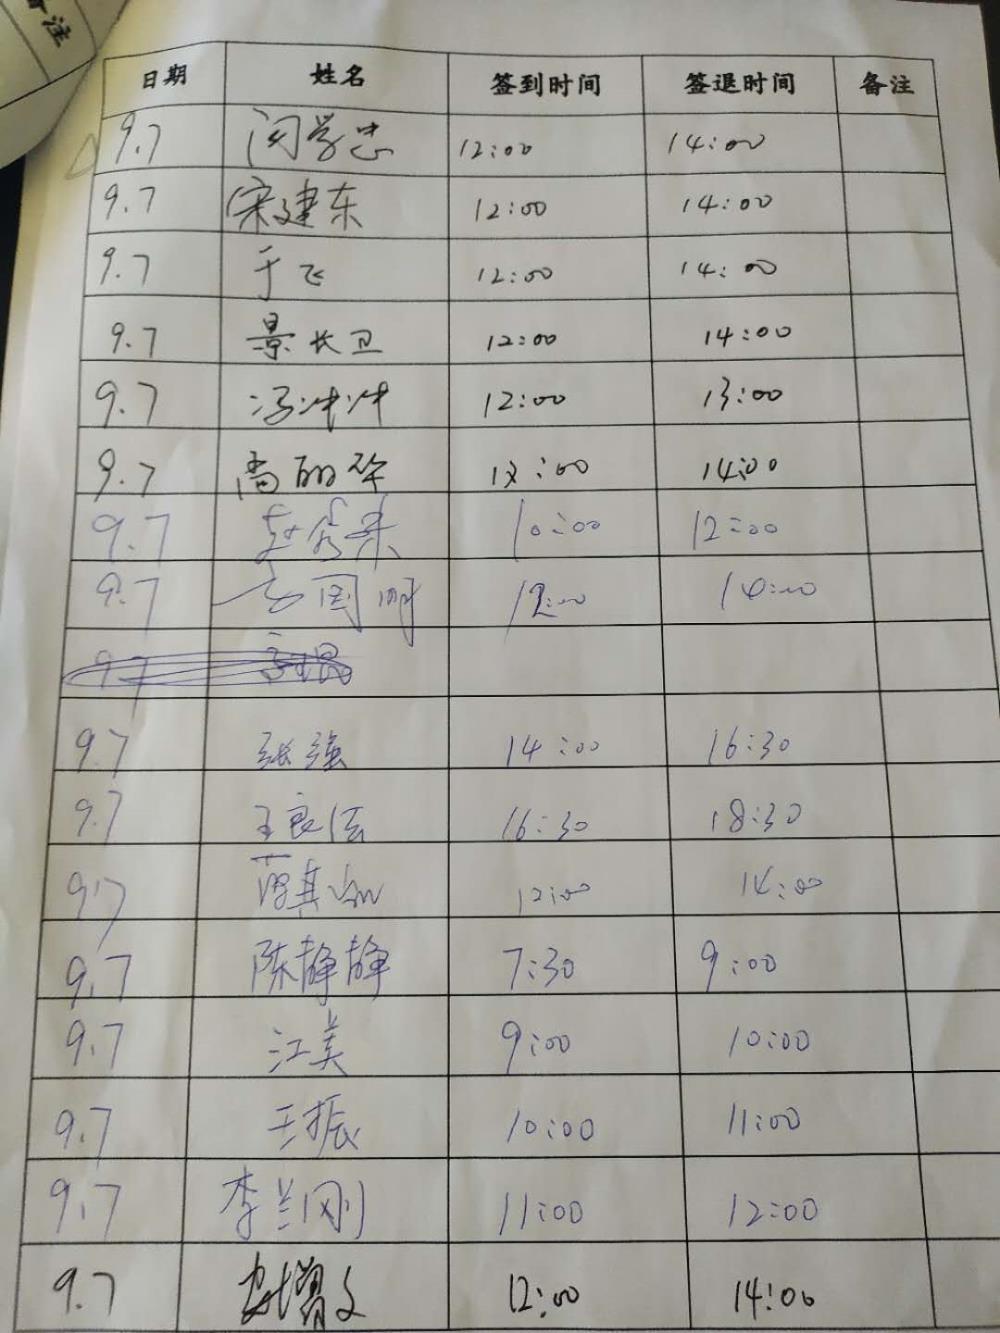 备注
日期 姓名 签到时间 签退时间 备注
9.7 闵学忠 12:00 14:00
9.7 宋建东 12:00 14:00
9.7 于飞 12:00 14:00
9.7 景长卫 12:00 14:00
9.7 冯冲冲 12:00 13:00
9.7 高丽华 12:00 14:00
9.7 10:00 12:00
9.7 国明 12:00 14:00
9.7
9.7 张强 14:00 16:30
9.7 王良法 16:30 18:30
9.7 12:00 14:00
9.7 陈静静 7:30 9:00
9.7 江美 9:00 10:00
9.7 王振 10:00 11:00
9.7 李兰刚 11:00 12:00
9.7 12:00 14:00